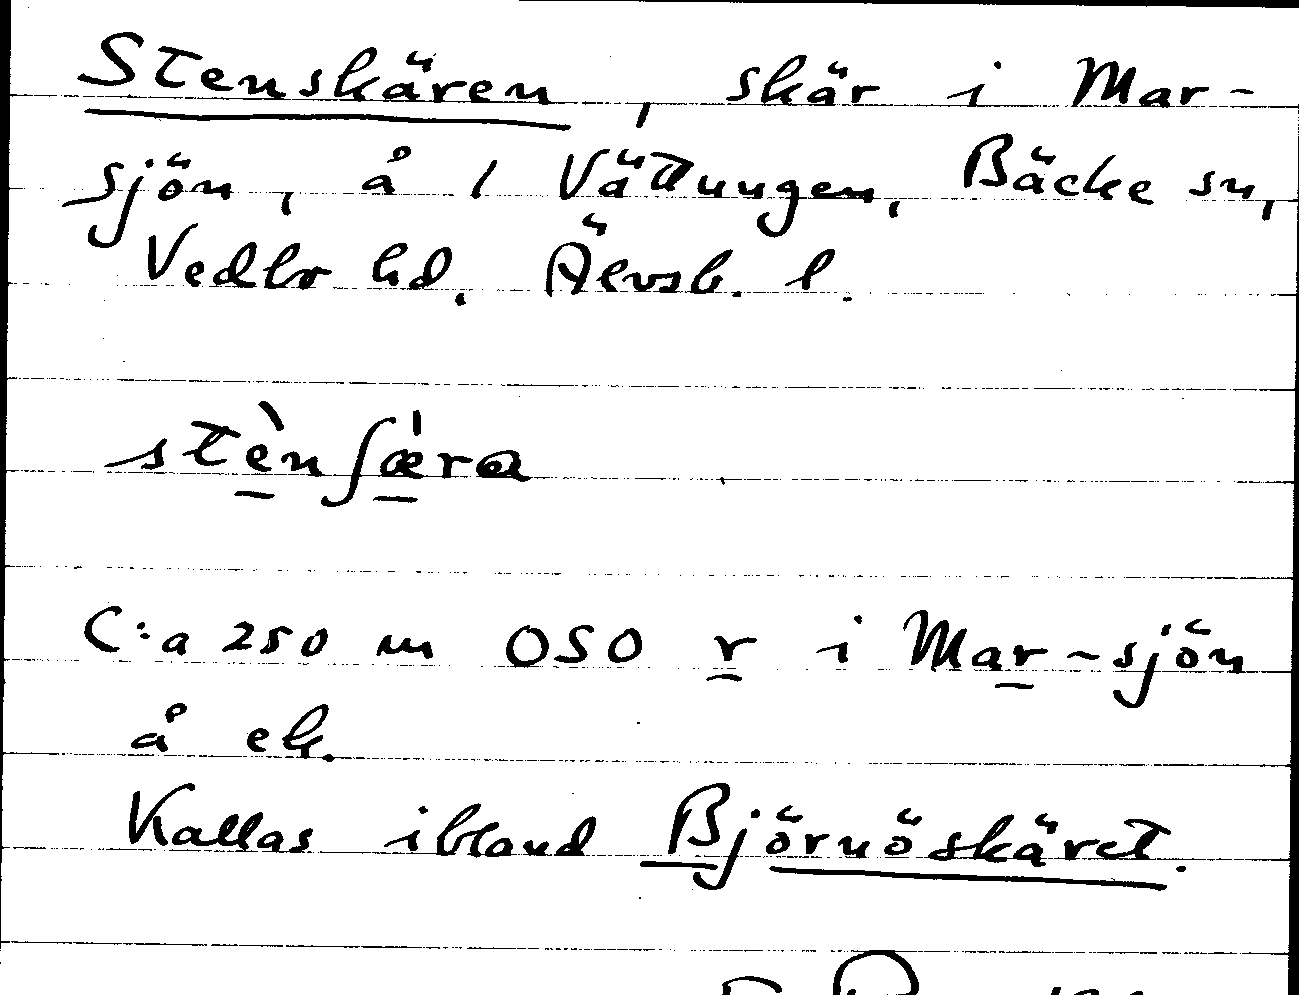 Stenskären, skär i Mar-
sjön, å 1 Vättungen, Bäcke sn,
Vedbo hd. Älvsb. l.
stènʃæ̀ra
C:a 250 m OSO r i Mar-sjön
å ek.
Kallas ibland Björnöskäret.